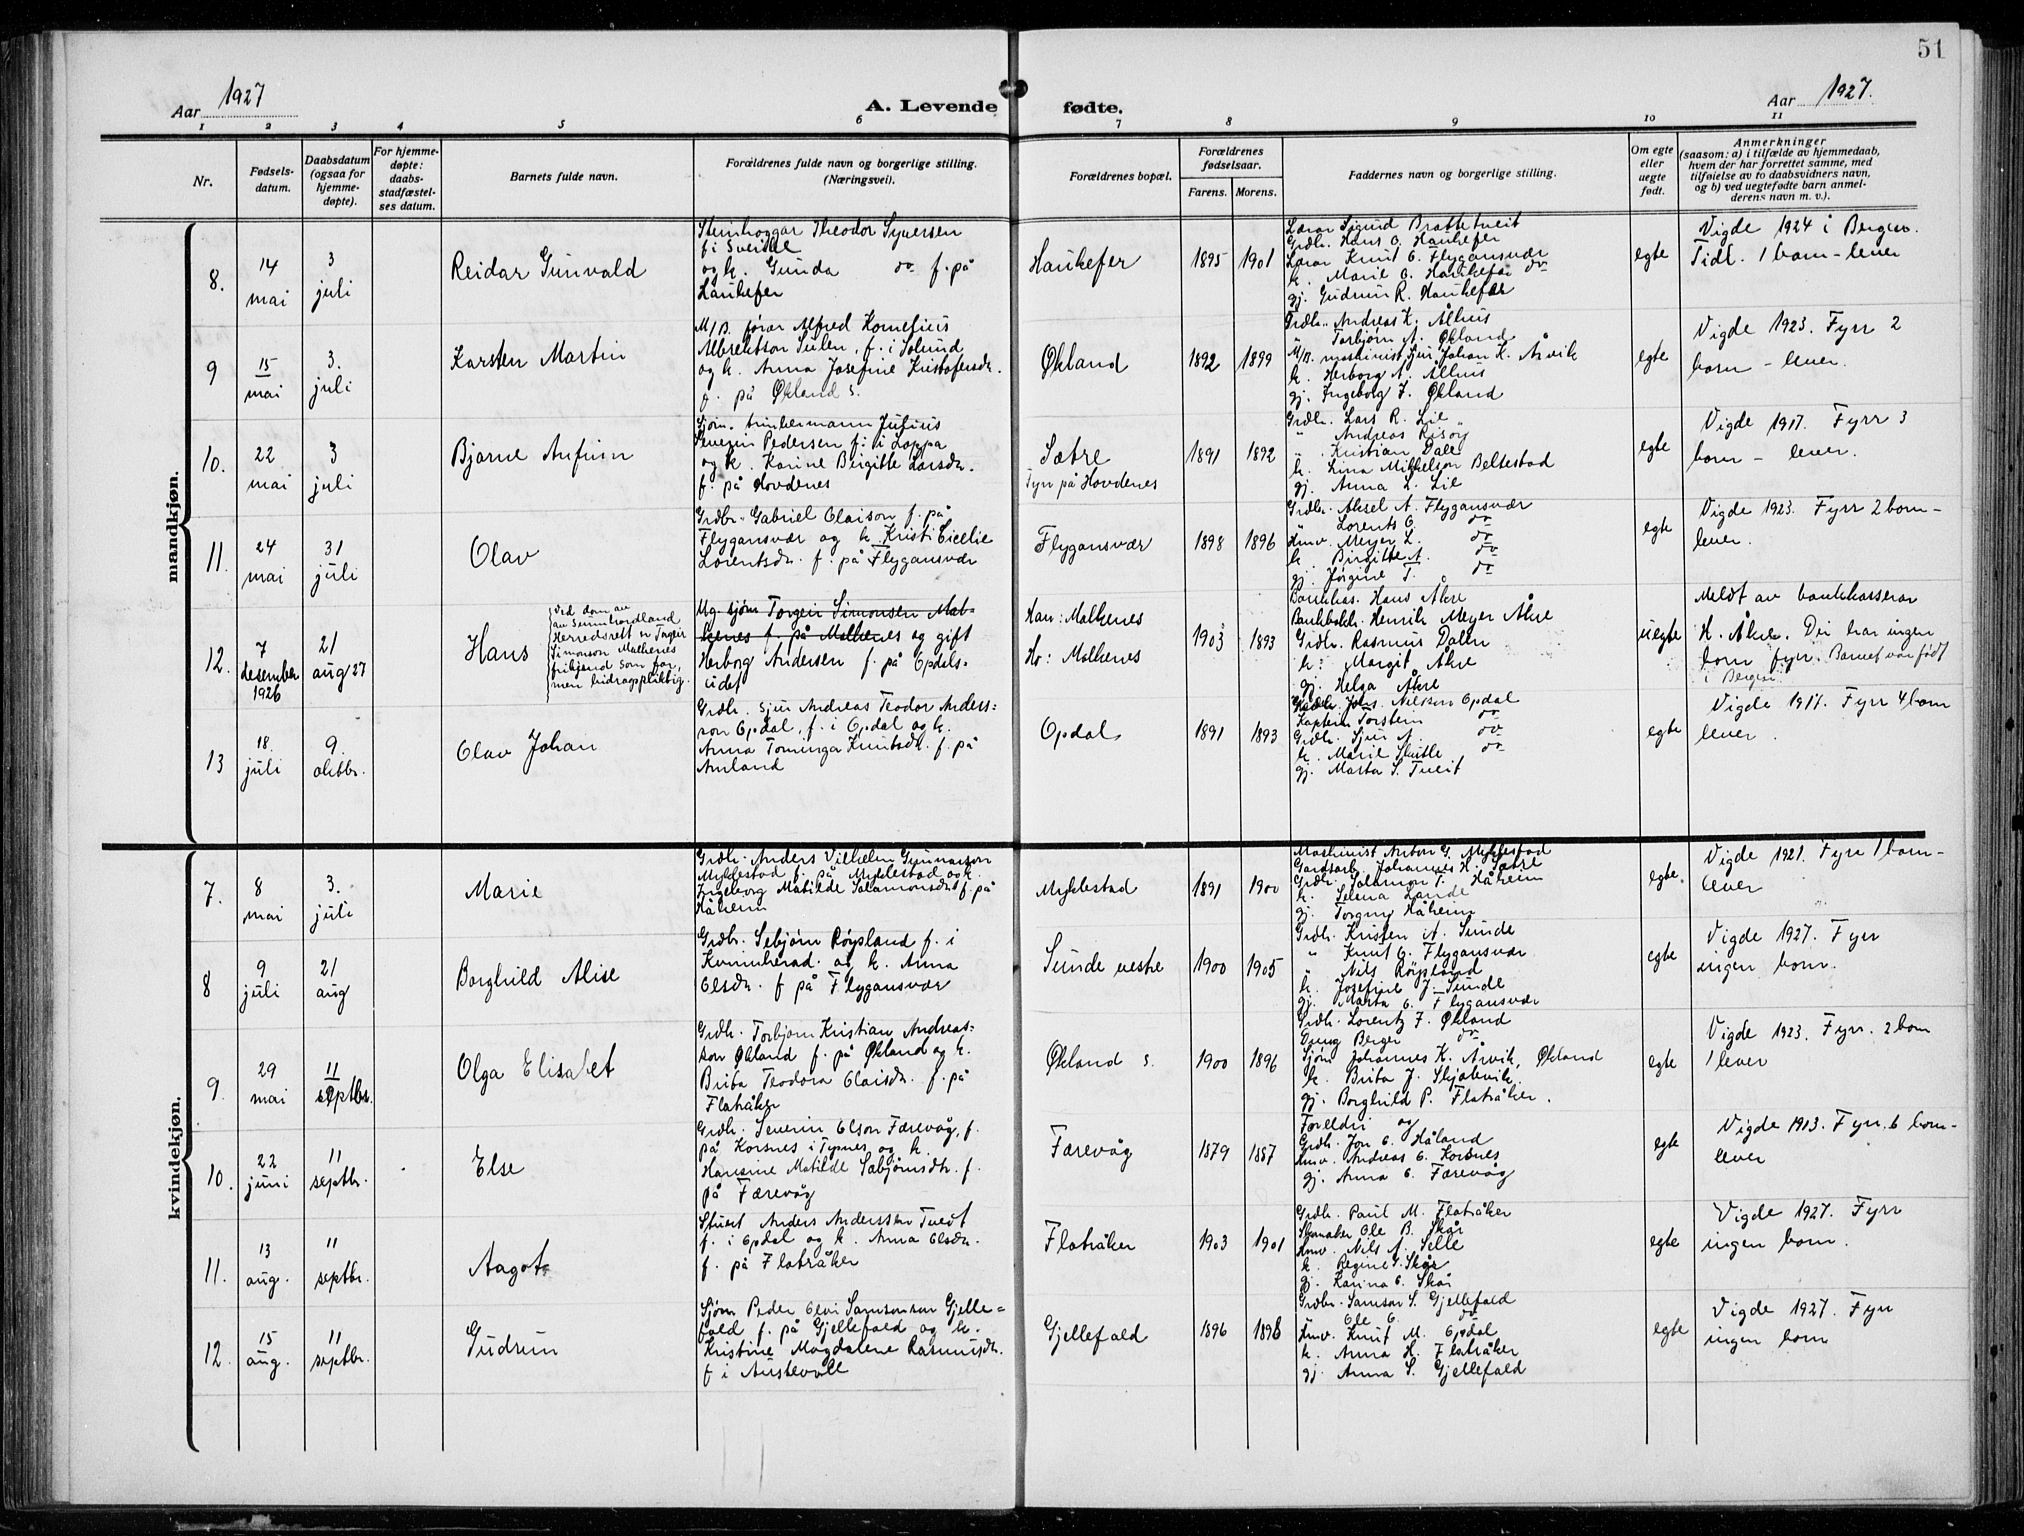 51
Aar 1927
A. Levende
fødte.
Aar 1927.
1 2 3 4 5 6 7 8 9 10 11
Nr.
Fødsels-
datum.
Daabsdatum
(ogsaa for
hjemme-
døpte).
For hjemme-
døpte:
daabs-
stadfæstel-
ses datum.
Barnets fulde navn.
Forældrenes fulde navn og borgerlige stilling.
(Næringsvei).
Forældrenes bopæl.
Forældrenes
fødselsaar.
Farens. Morens.
Faddernes navn og borgerlige stilling.
Om egte
eller
uegte
født.
Anmerkninger
(saasom: a) i tilfælde av hjemmedaab,
hvem der har forrettet samme, med
tilføielse av to daabsvidners navn,
og b) ved uegtefødte barn anmel-
derens navn m. v.).
mandkjøn.
8.
14
mai
3
juli
Reidar Gunvald
Steinhoggar Theodor Syversen
f. i Sverike
og k. Gunda do f. på
Haukefer
Haukefer
1895 1901
Lærar Sigurd Brattetveit
Grdbr. Hans O. Haukefer
Lærar Knut O. Flygansvær
k. Marie O. Haukefær do
gj. Gudrun R. Haukefær
egte
Vigde 1924 i Bergen.
Tidl. 1 born - lever
9
15
mai
3.
juli
Karsten Martin
M/B. førar Alfred Kornelius
Albrektson Sulen, f. i Solund
og k. Anna Josefine Kristofersdr.
f. på Økland s.
Økland
1892 1899
Grdbr. Andreas K. Alhus
" Torbjørn A. Økland
M/B. maskinist Sjur Johan K. Årvik
k. Herborg A. Alhus
gj. Ingeborg J. Økland
egte
Vigde 1923. Fyrr 2
born - lever.
10.
22
mai
3
juli
Bjarne Anfinn
Severin Pedersen f. i Loppa
og k. Karine Birgitte Larsdr.
f. på Hovdenes
Sætre
Fyrr på Hovdenes
1891 1892
Grdbr. Lars R. Lie
" Andreas Risøy
" Kristian Dale
k. Lina Mikkelson Beltestad
gj. Anna L. Lie
egte
Vigde 1917. Fyrr 3
born - lever.
11.
24
mai
31
juli
Olav
Grdbr. Gabriel Olaison f. på
Flygansvær og k. Kristi Cicelie
Lorentsdr. f. på Flygansvær
Flygansvær
1898 1896
Grdbr. Aksel A. Flygansvær
" Lorents O. do
Umv. Meyer L. do
k. Birgitte A. do
gj. Jørgine T. do
egte
Vigde 1923. Fyrr 2 born -
lever.
12.
7
desember
1926
21
aug 27
Hans
Ved dom av
av Sunnhordland
Herredsrett er Torgeir
Simonson Malkenes
frikjend som far,
men bidragspliktig.
Ug. sjøm Torgeir Simonsen Mal-
kenes f. på Malkenes og gift
Herborg Andersen f. på Opdals-
eidet
Han: Malkenes
Ho: Malkenes
1903 1893
Bankkas. Hans Åkre
Bankbokh. Henrik Meyer Åkre
Grdbr. Rasmus Dalen
k. Margit Åkre
gj. Helga Åkre
uegte
Meldt av bankkasserar
H. Åkre. Dei har ingen
born fyrr. Barnet var født
i Bergen.
13
18.
juli
9.
oktbr.
Olav Johan
Grdbr. Sjur Andreas Teodor Anders=
son Opdal, f. i Opdal og k.
Anna Tominga Knutsdr. f. på
Amland
Opdal
1891 1893
Grdbr. Johs. Nilsson Opdal
Kaptein Torstein do
Grdbr. Sjur A. do
k. Marie Skutle do
gj. Marta S. Tveit
egte
Vigde 1917. Fyrr 4 born
lever.
kvindekjøn.
7.
8
mai
3.
juli
Marie
Grdbr. Anders Vilhelm Gunnarson
Myklestad f. på Myklestad og k.
Ingeborg Matilde Salamonsdr f. på
Håheim
Myklestad
1891 1900
Maskinist Anton G. Myklestad
Gardsarb. Johannes H. Sætre
Grdbr. Salamon T. Håheim
k. Selena Lande
gj. Torgny Håheim
egte.
Vigde 1921. Fyrr 1 born -
lever
8
9
juli
21
aug
Borghild Alise
Grdbr. Sebjørn Røysland f. i
Kvinnherad og k. Anna
Olsdr. f på Flygansvær
Sunde vestre
1900 1905
Grdbr. Kristen A. Sunde
" Knut O. Flygansvær
" Nils Røysland
k. Josefine J. Sunde
gj. Marta O. Flygansvær
egte
Vigde 1927. Fyrr
ingen born.
9.
29
mai
11
septbr.
Olga Elisabet
Grdbr. Torbjørn Kristian Andreas=
son Økland f. på Økland og k.
Brita Teodora Olaisdr. f. på
Flatråker
Økland s.
1900 1896
Grdbr. Lorentz J. Økland
Dreng Berger do
Sjøm Johannes K. Årvik, Økland
k. Brita J. Skjelevik.
gj. Borghild P. Flatråker.
egte
Vigde 1923. Fyrr. 2 born
1 lever
10.
22
juni
11
septbr.
Else
Grdbr. Severin Olson Færevåg, f.
på Korsnes i Tysnes og k.
Hansine Matilde Sebjørnsdr. f.
på Færevåg
Færevåg
1879 1887
Foreldri og
Grdbr. Jon O. Håland
Umv. Andreas O. Korsnes
gj. Anna O. Færevåg
egte
Vigde 1913. Fyrr 6 born-
lever
11.
13
aug.
11
septbr.
Aagot
Stuert Anders Anderssen Tveit
f. i Opdal og k. Anna Olsdr.
f. på Flatråker
Flatråker
1903 1901
Grdbr. Paul M. Flatråker
Skomaker Ole B. Skår
Umv. Nils A. Selle
k. Regine S. Skår
gj. Karina O. Skår
egte
Vigde 1927. Fyrr
ingen born.
12.
15
aug.
11
septbr.
Gudrun
Sjøm Peder Olai Samsonson Gjelle=
fald f. på Gjellefald og k.
Kristine Magdalene Rasmusdr.
f i Austevoll
Gjellefald
1896 1898
Grdbr. Samson S. Gjellefald
Ole O. do
Umv. Knut M. Opdal
k. Anna H. Flatråker
gj Anna S. Gjellefald
egte
Vigde 1927. Fyrr
ingen born